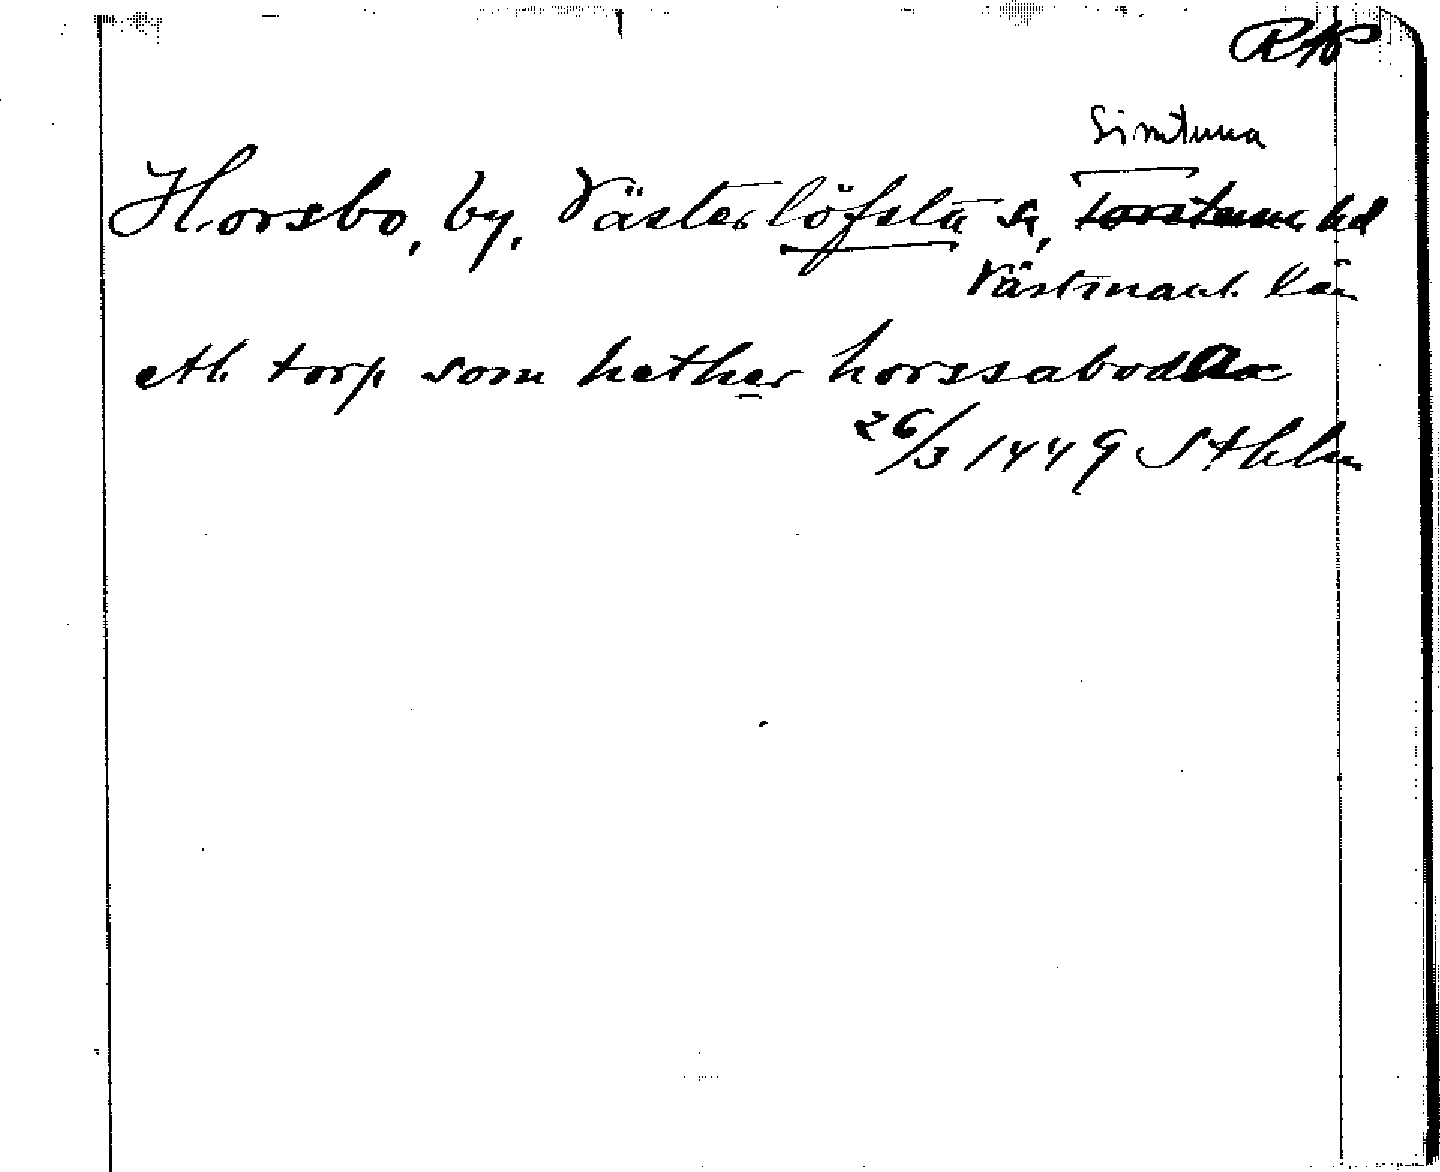 RAP
Simtuna
Horsbo, by, Västerlöfsta sn, Torstuna hd
Västmanl. län
eth torp som hether horssabodha
26/3 1449 Sthlm